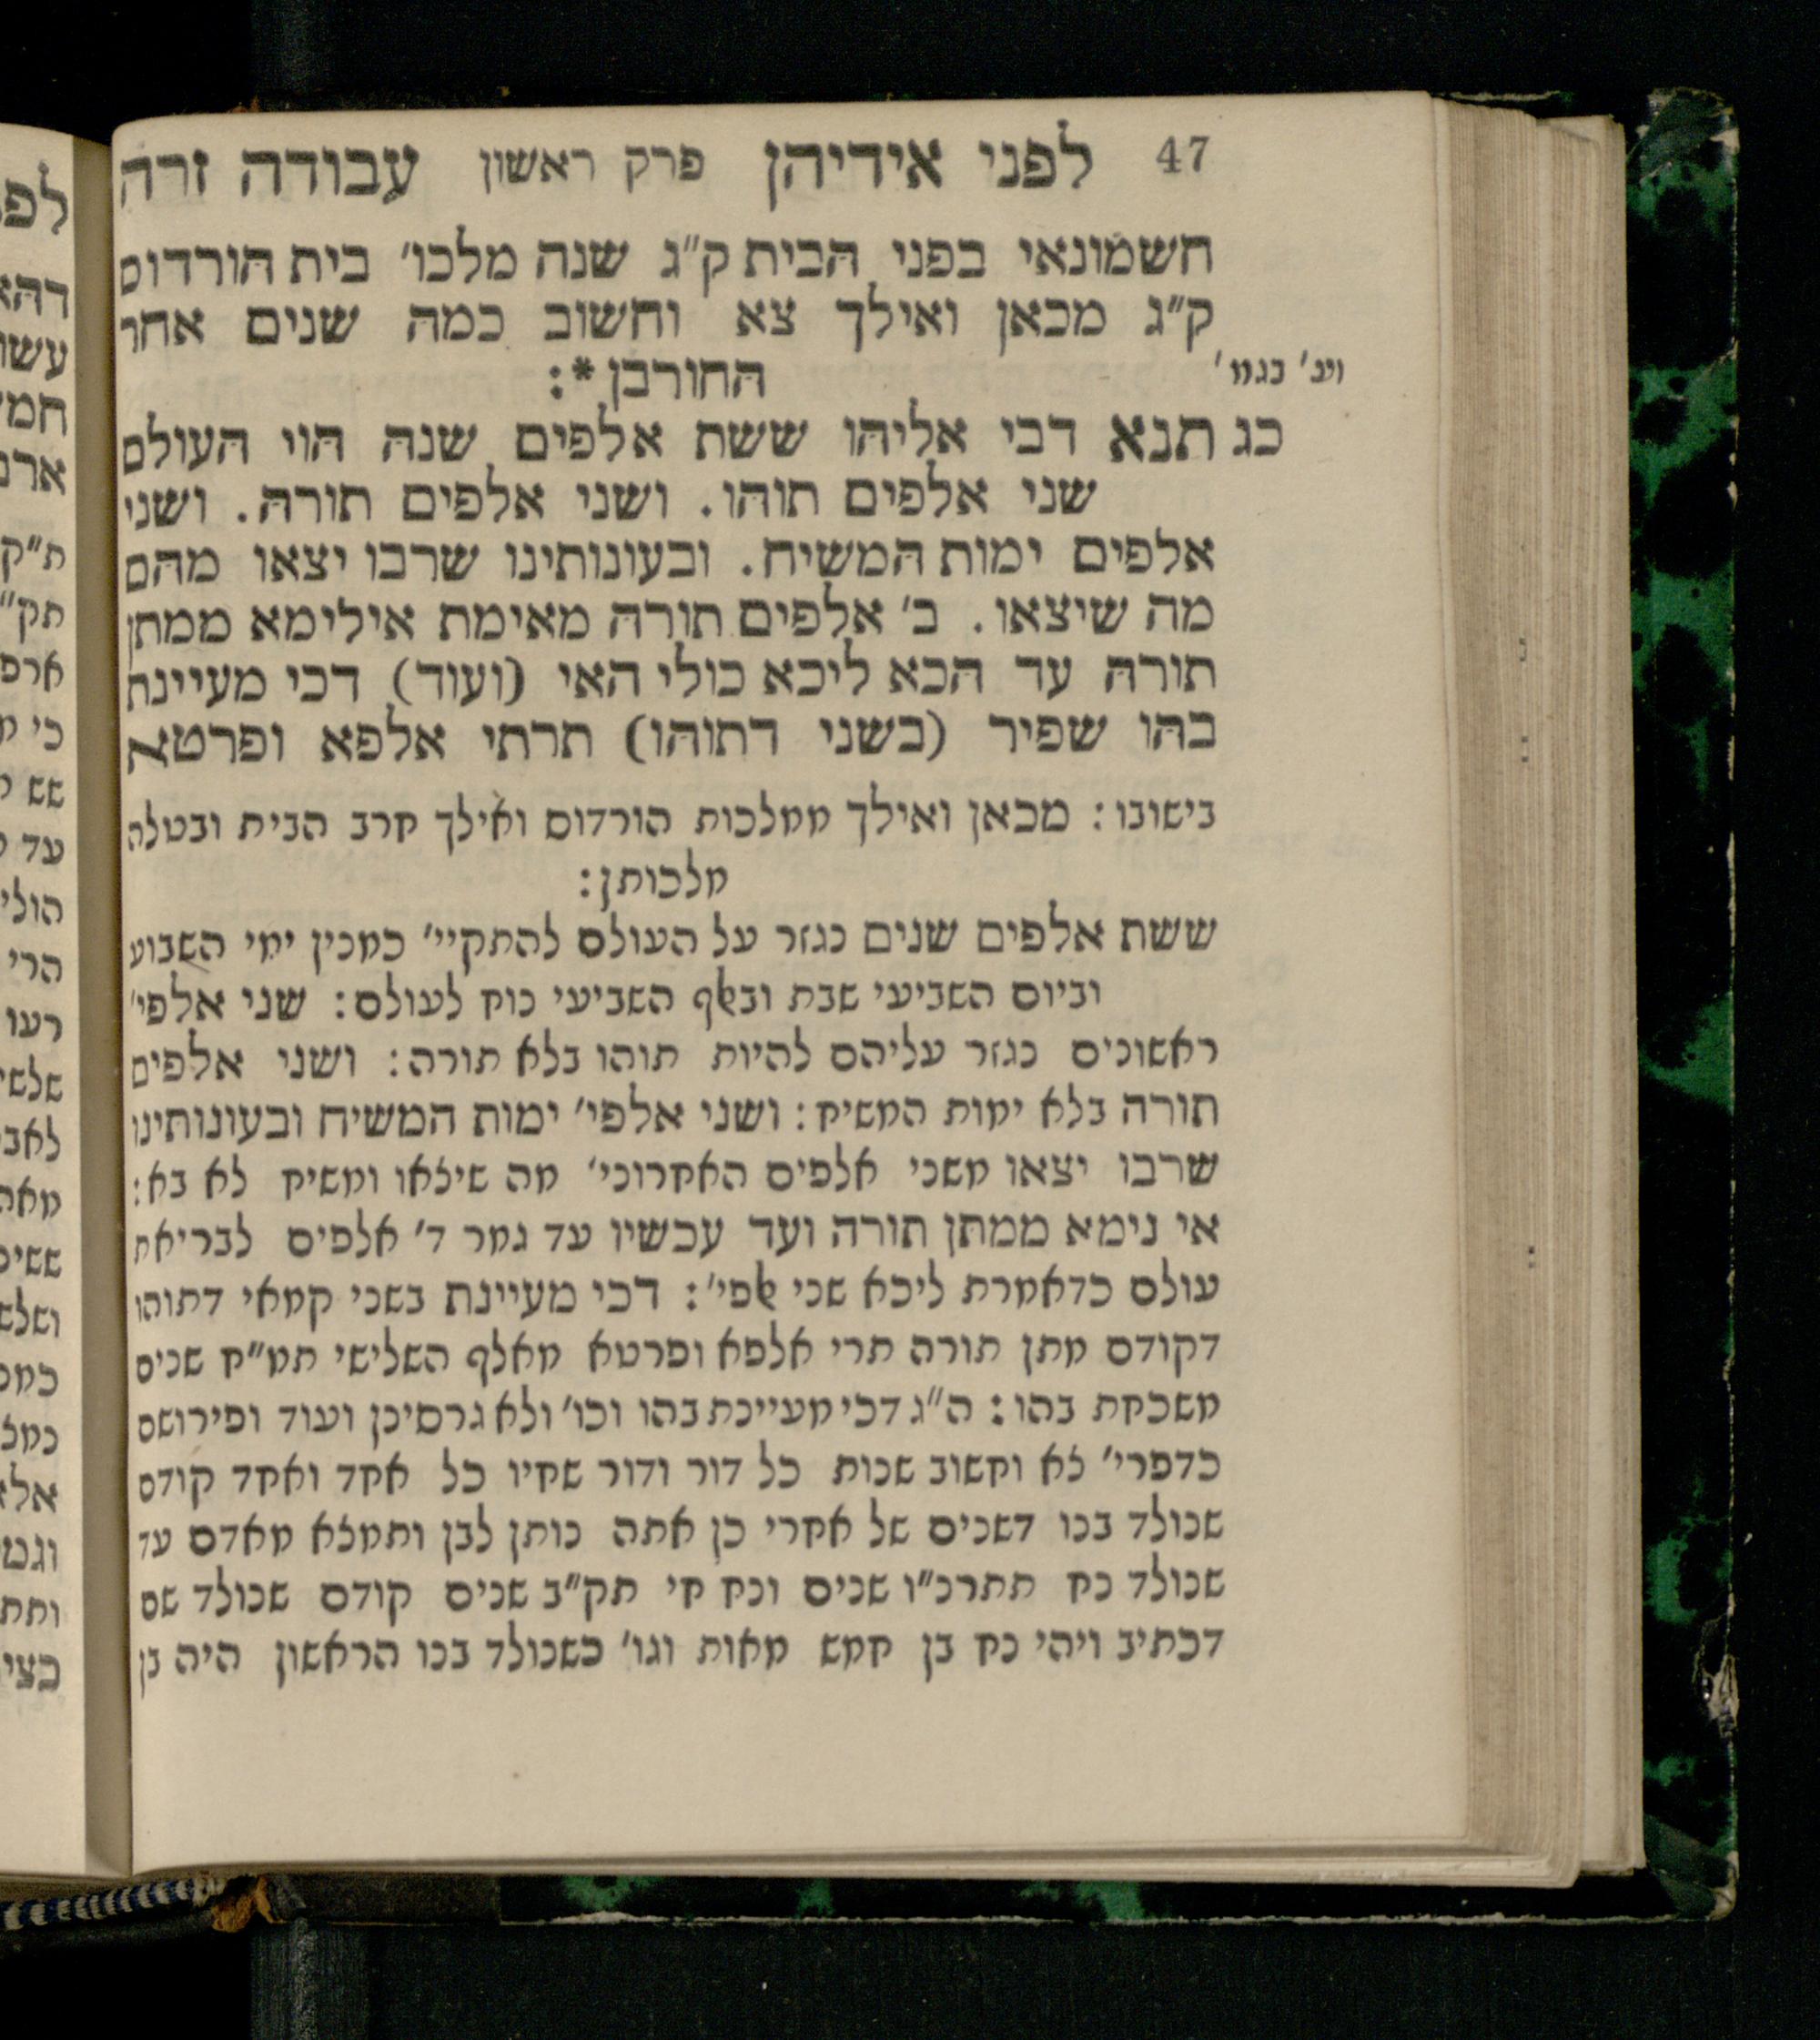 47 לפני אידיהן פרק ראשון עבודה זרה
חשמונאי בפני הבית ק"ג שנה מלכו' בית הורדוס
ק"ג מכאן ואילך צא וחשוב כמה שנים אחר
החורבן *:
וע' בגמ'
כג תנא דבי אליהו ששת אלפים שנה הוי העולם
שני אלפים תוהו. ושני אלפים תורה. ושני
אלפים ימות המשיח. ובעונותינו שרבו יצאו מהם
מה שיצאו. ב' אלפים תורה מאימת אילימא ממתן
תורה עד הכא ליכא כולי האי (ועוד) דכי מעיינת
בהו שפיר (בשני דתוהו) תרתי אלפא ופרטא
בישובו: מכאן ואילך ממלכות הורדוס ואילך חרב הבית ובטלה
מלכותן:
ששת אלפים שנים נגזר על העולם להתקיי' כמנין ימי השבוע
וביום השביעי שבת ובאלף השביעי נוח לעולם: שני אלפי'
ראשונים נגזר עליהם להיות תוהו בלא תורה: ושני אלפים
תורה בלא ימות המשיח: ושני אלפי' ימות המשיח ובעונותינו
שרבו יצאו משני אלפים האחרוני' מה שיצאו ומשיח לא בא:
אי נימא ממתן תורה ועד עכשיו עד גמר ד' אלפים לבריאת
עולם כדאמרת ליכא שני אלפי': דכי מעיינת בשני קמאי דתוהו
דקודם מתן תורה תרי אלפא ופרטא מאלף השלישי תמ"ח שנים
משכחת בהו: ה"ג דכי מעיינת בהו וכו' ולא גרסינן ועוד ופירושם
כדפרי' צא וחשוב שנות כל דור ודור שחיו כל אחד ואחד קודם
שנולד בנו דשנים של אחרי כן אתה נותן לבן ותמצא מאדם עד
שנולד נח תתרנ"ו שנים ונח חי תק"ב שנים קודם שנולד שם
דכתיב ויהי נח בן חמש מאות וגו' כשנולד בנו הראשון היה בן